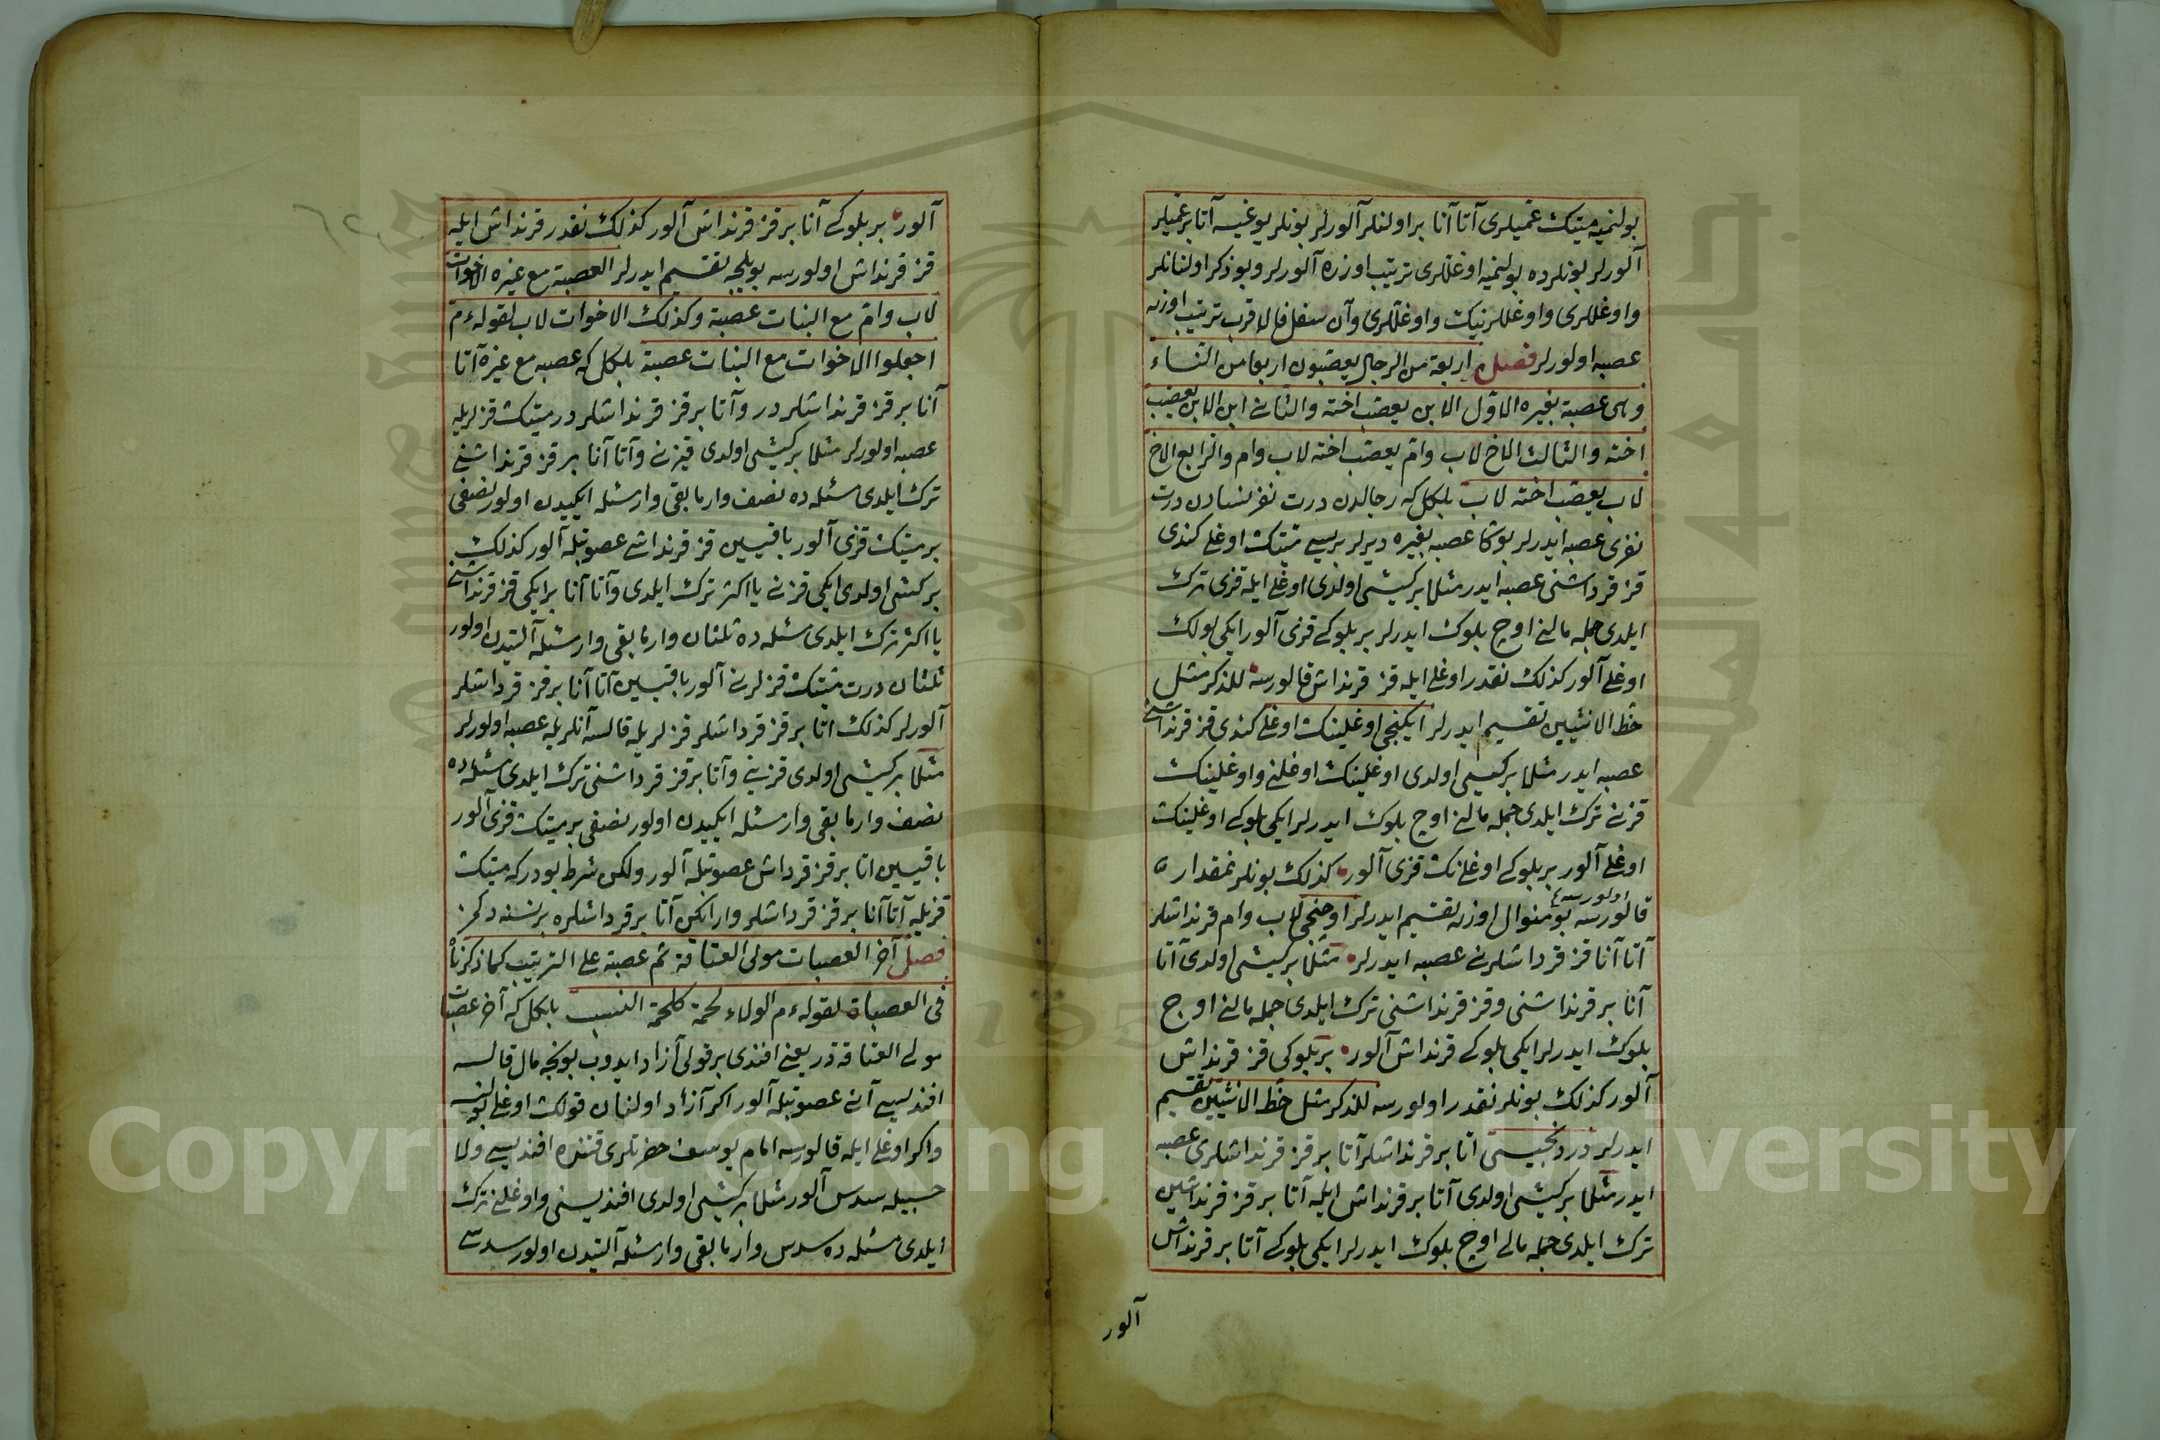 بولنمیه میتك عمیلری آتا آنا بر اولنلر آلورلر بونلر یوغیسه آتا بر عمیلر
آلورلر بونلرده بولنمیه اوغللری ترتیب اوزره آلورلر وبو ذکر اولنانلر
واوغللری واوغللرینك واوغللری وآن سفل فالاقرب ترتیب اوزره
عصبه اولورلر فصل اربعة من الرجال یعصبون اربعا من النساء
وهی عصبة بغیره الاول الابن یعصب اخته والثانی ابن الابن یعصب
اخته والثالث الاخ لاب وام یعصب اخته لاب وام والرابع الاخ
لاب یعصب اخته لاب بلکل که رجالدن درت نفر نسادن درت
نفری عصبه ایدرلر بوکا عصبه بغیره دیرلر بریسی میتك اوغلی کندی
قز قرداشنی عصبه ایدر مثلا بر کیشی اولدی اوغلی ایله قزی ترك
ایلدی جمله مالنی اوچ بلوك ایدرلر بر بلوکی قزی آلور ایکی بولك
اوغلی آلور کذلك نقدر اوغلی ایله قز قرنداش قالورسه للذکر مثل
حظ الانثیین تقسیم ایدرلر ایکنجی اوغلینك اوغلی کندی قز قرنداشنی
عصبه ایدر مثلا بر کیسی اولدی اوغلینك اوغلنی واوغلینك
قزنی ترك ایلدی جمله مالنی اوچ بلوك ایدرلر ایکی بلوکی اوغلینك
اوغلی آلور بر بلوکی اوغلنك قزی آلور کذلك بونلر نمقدار
اولورسه
قالورسه بو منوال اوزره تقسیم ایدرلر اوچنجی لاب وام قرنداشلر
آتا آنا قز قرداشلرنی عصبه ایدرلر مثلا بر کیشی اولدی آتا
آنا بر قرنداشنی وقز قرنداشنی ترك ایلدی جمله مالنی اوچ
بلوك ایدرلر ایکی بلوکی قرنداش آلور بر بلوکی قز قرنداش
آلور کذلك بونلر نقدر اولورسه للذکر مثل حظ الانثیین تقسیم
ایدرلر دردنجیسی اتا بر قرنداشلر آتا بر قز قرنداشلری عصبه
ایدر مثلا بر کیشی اولدی آتا بر قرنداش ایله آتا بر قز قرنداشین
ترك ایلدی جمله مالی اوچ بلوك ایدرلر ایکی بلوکی آتا بر قرنداش
آلور
آلور بر بلوکی آنا بر قز قرنداش آلور کذلك نقدر قرنداش ایله
قز قرنداش اولورسه بویلجه تقسیم ایدرلر العصبة مع غیره الاخوات
لاب وام مع البنات عصبة وکذلك الاخوات لاب لقوله ءم
اجعلوا الاخوات مع البنات عصبة بلکل که عصبه مع غیره آتا
آنا بر قز قرنداشلردر وآتا بر قز قرنداشلردر میتك قزلریله
عصبه اولورلر مثلا بر کیشی اولدی قیزنی وآتا آنا بر قز قرنداشنی
ترك ایلدی مسئله ده نصف وار مابقی وار مسئله ایکیدن اولور نصفی
بر میتك قزی آلور باقیسین قز قرنداشی عصوبتله آلور کذلك
بر کشی اولدی ایکی قزنی یا اکثر ترك ایلدی وآتا آنا بر ایکی قز قرنداشنی
یا اکثر ترك ایلدی مسئله ده ثلثان وار مابقی وار مسئله آلتیدن اولور
ثلثان درت میتك قزلرنی آلور باقیسین آتا آنا بر قز قرداشلر
آلورلر کذلك اتا بر قز قرداشلر قزلریله قالسه آنلریله عصبه اولورلر
مثلا بر کیشی اولدی قزینی وآتا بر قز قرداشنی ترك ایلدی مسئله ده
نصف وار مابقی وار مسئله ایکیدن اولور نصفی بر میتك قزی آلور
باقیسین اتا بر قز قرداش عصوبتله آلور ولکن شرط بودر که میتك
قزیله آتا آنا بر قز قرداشلر وار ایکن آتا بر قرداشلره بر نسنه دکمز
فصل آخر العصبات مولی العتاقة ثم عصبته علی الترتیب کما ذکرنا
فی العصبات لقوله ءم الولاء لحمة کلحمة النسب بلکل که آخر عصبات
مولی العتاقةدر یعنی افندی بر قولی آزاد ایدوب بونجه مال قالسه
افندیسی آنی عصوبتله آلور اکر آزاد اولنان قولك اوغلی بولنسه
واکر اوغلی ایله قالورسه امام یوسف حضرتلری قتنده افندیسی ولا
حسبیله سدس آلور مثلا بر کیشی اولدی افندیسنی واوغلنی ترك
ایلدی مسئله ده سدس وار مابقی وار مسئله آلتیدن اولور سدسی
Copyright © King Saud University